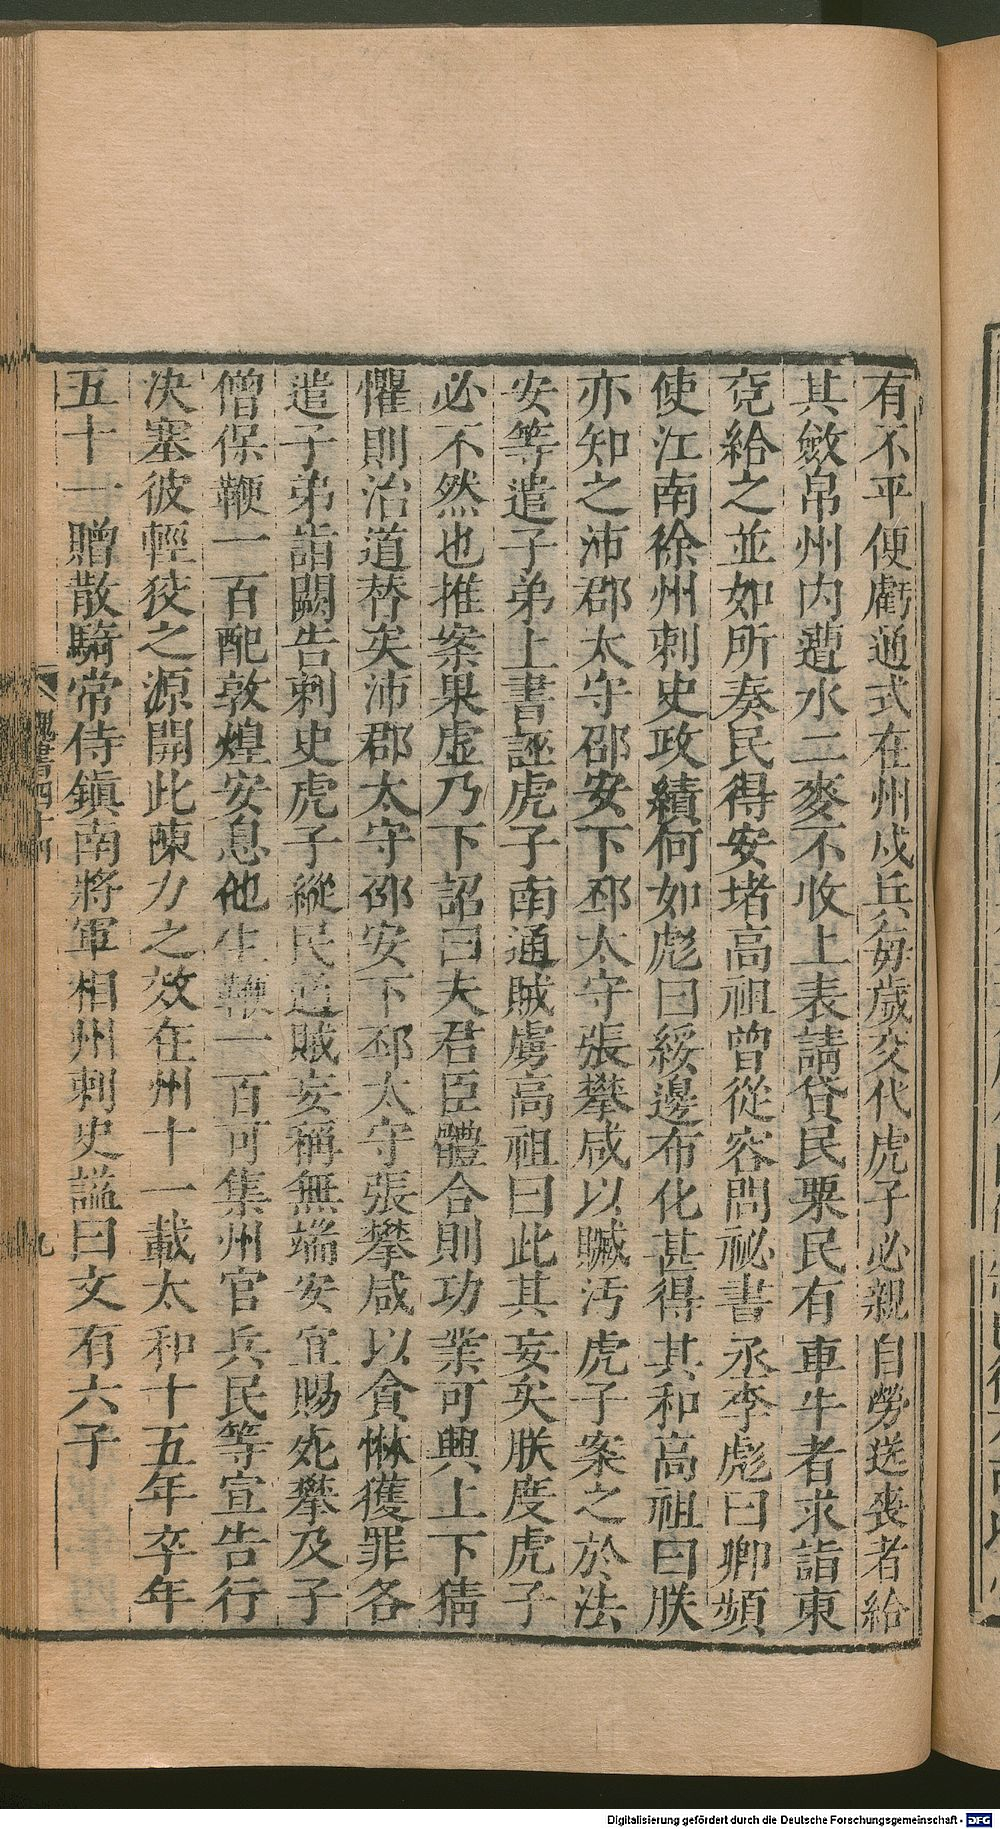 有不平便虧通式在州戍兵每歲交代虎子必親自勞送喪者給
其斂帛州內遭水二麥不收上表請貸民粟民有車牛者求詣東
兗給之並如所奏民得安堵高祖曾從容問祕書丞李彪曰卿頻
使江南徐州刺史政績何如彪曰綏邊布化甚得其和高祖曰朕
亦知之沛郡太守邵安下邳太守張攀咸以贓污虎子案之於法
安等遣子弟上書誣虎子南通賊虜高祖曰此其妄矣朕度虎子
必不然也推案果虛乃下詔曰夫君臣體合則功業可興上下猜
懼則治道替矣沛郡太守邵安下邳太守張攀咸以貪惏獲罪各
遣子弟詣闕告刺史虎子縱民通賊妄稱無端安宜賜死攀及子
僧保鞭一百配敦煌安息他生鞭一百可集州官兵民等宣告行
決塞彼輕狡之源開此陳力之效在州十一載太和十五年卒年
五十一贈散騎常侍鎮南將軍相州刺史謚曰文有六子
魏書四十四
九
Digitalisierung gefördert durch die Deutsche Forschungsgemeinschaft - DFG